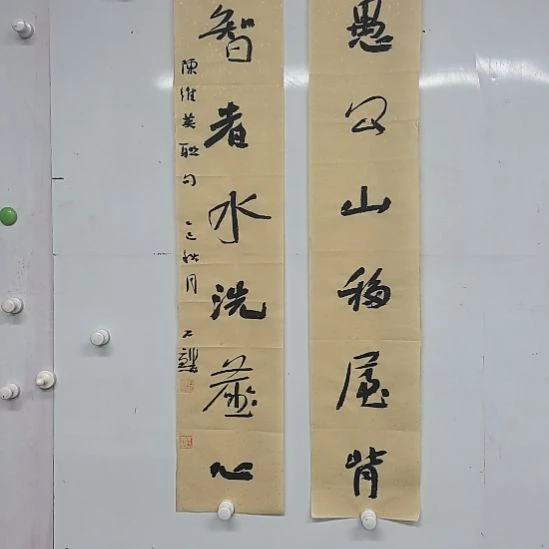 愚公山移屋背
智者水洗心
陳維英聯句 乙巳秋月